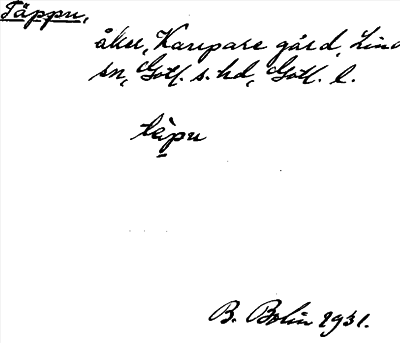 Täppu,
åker, Kaupare gård, Lind
sn, Gotl. s. hd, Gotl. l.
tä̀pu
B. Bolin 1931.